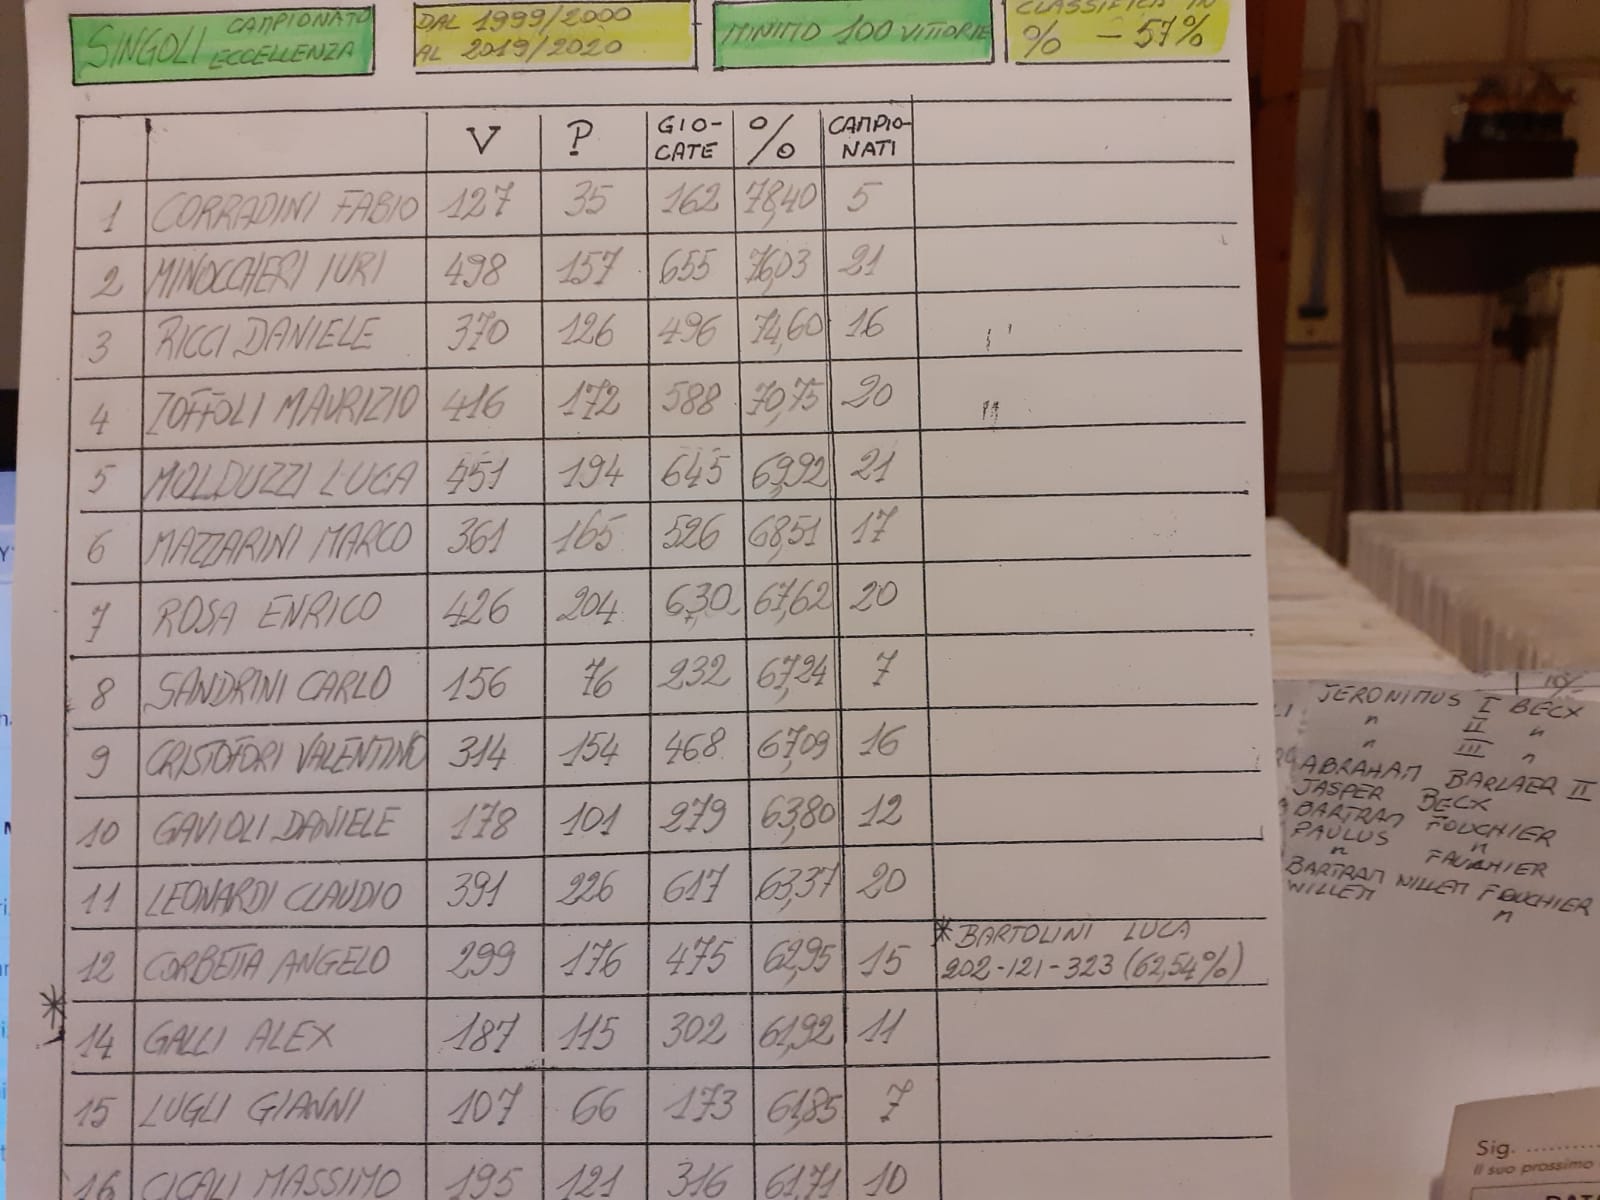 SINGOLI CAMPIONATO ECCELLENZA
DAL 1999/2000
AL 2019/2020
MINIMO 100 VITTORIE
CLASSIFICA IN
% - 57%
V P GIO-CATE % CAMPIO-NATI
1 CORRADINI FABIO 127 35 162 78,40 5
2 MINOCCHERI IURI 498 157 655 76,03 21
3 RICCI DANIELE 370 126 496 74,60 16
4 ZOFFOLI MAURIZIO 416 172 588 70,75 20
5 MOLDUZZI LUCA 451 194 645 69,92 21
6 MAZZARINI MARCO 361 165 526 68,51 17
7 ROSA ENRICO 426 204 630 67,62 20
8 SANDRINI CARLO 156 76 232 67,24 7
9 CRISTOFORI VALENTINO 314 154 468 67,09 16
10 GAVIOLI DANIELE 178 101 279 63,80 12
11 LEONARDI CLAUDIO 391 226 617 63,37 20
12 CORBETTA ANGELO 299 176 475 62,95 15
* BARTOLINI LUCA
202-121-323 (62,54%)
*
14 GALLI ALEX 187 115 302 61,92 11
15 LUGLI GIANNI 107 66 173 61,85 7
16 CICALI MASSIMO 195 121 316 61,71 10
JERONIMUS I BECX
" II "
" III "
ABRAHAM BARLAER II
JASPER BECX
BARTRAM FOUCHIER
PAULUS "
" FAUCHIER
BARTRAM WILLEM FOUCHIER
WILLEM "
Sig.
Il suo prossimo